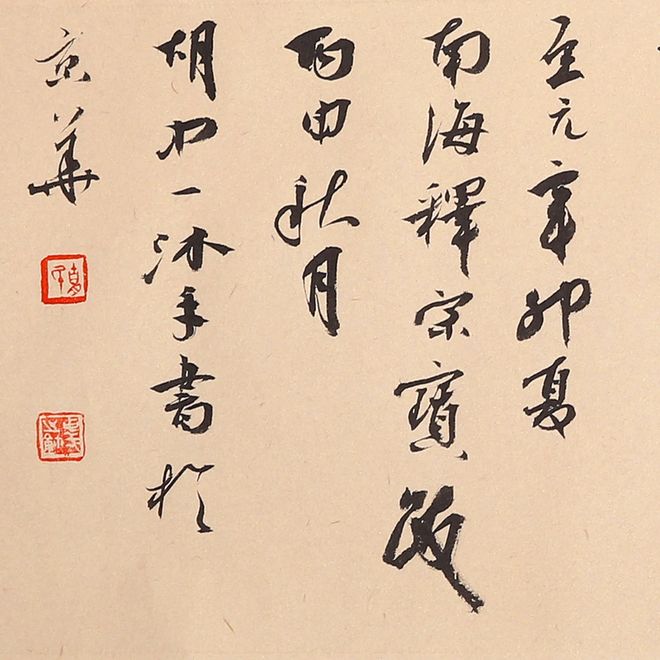 至元辛卯夏
南海釋宗寶跋
丙申秋月
胡中一沐手書於
京華